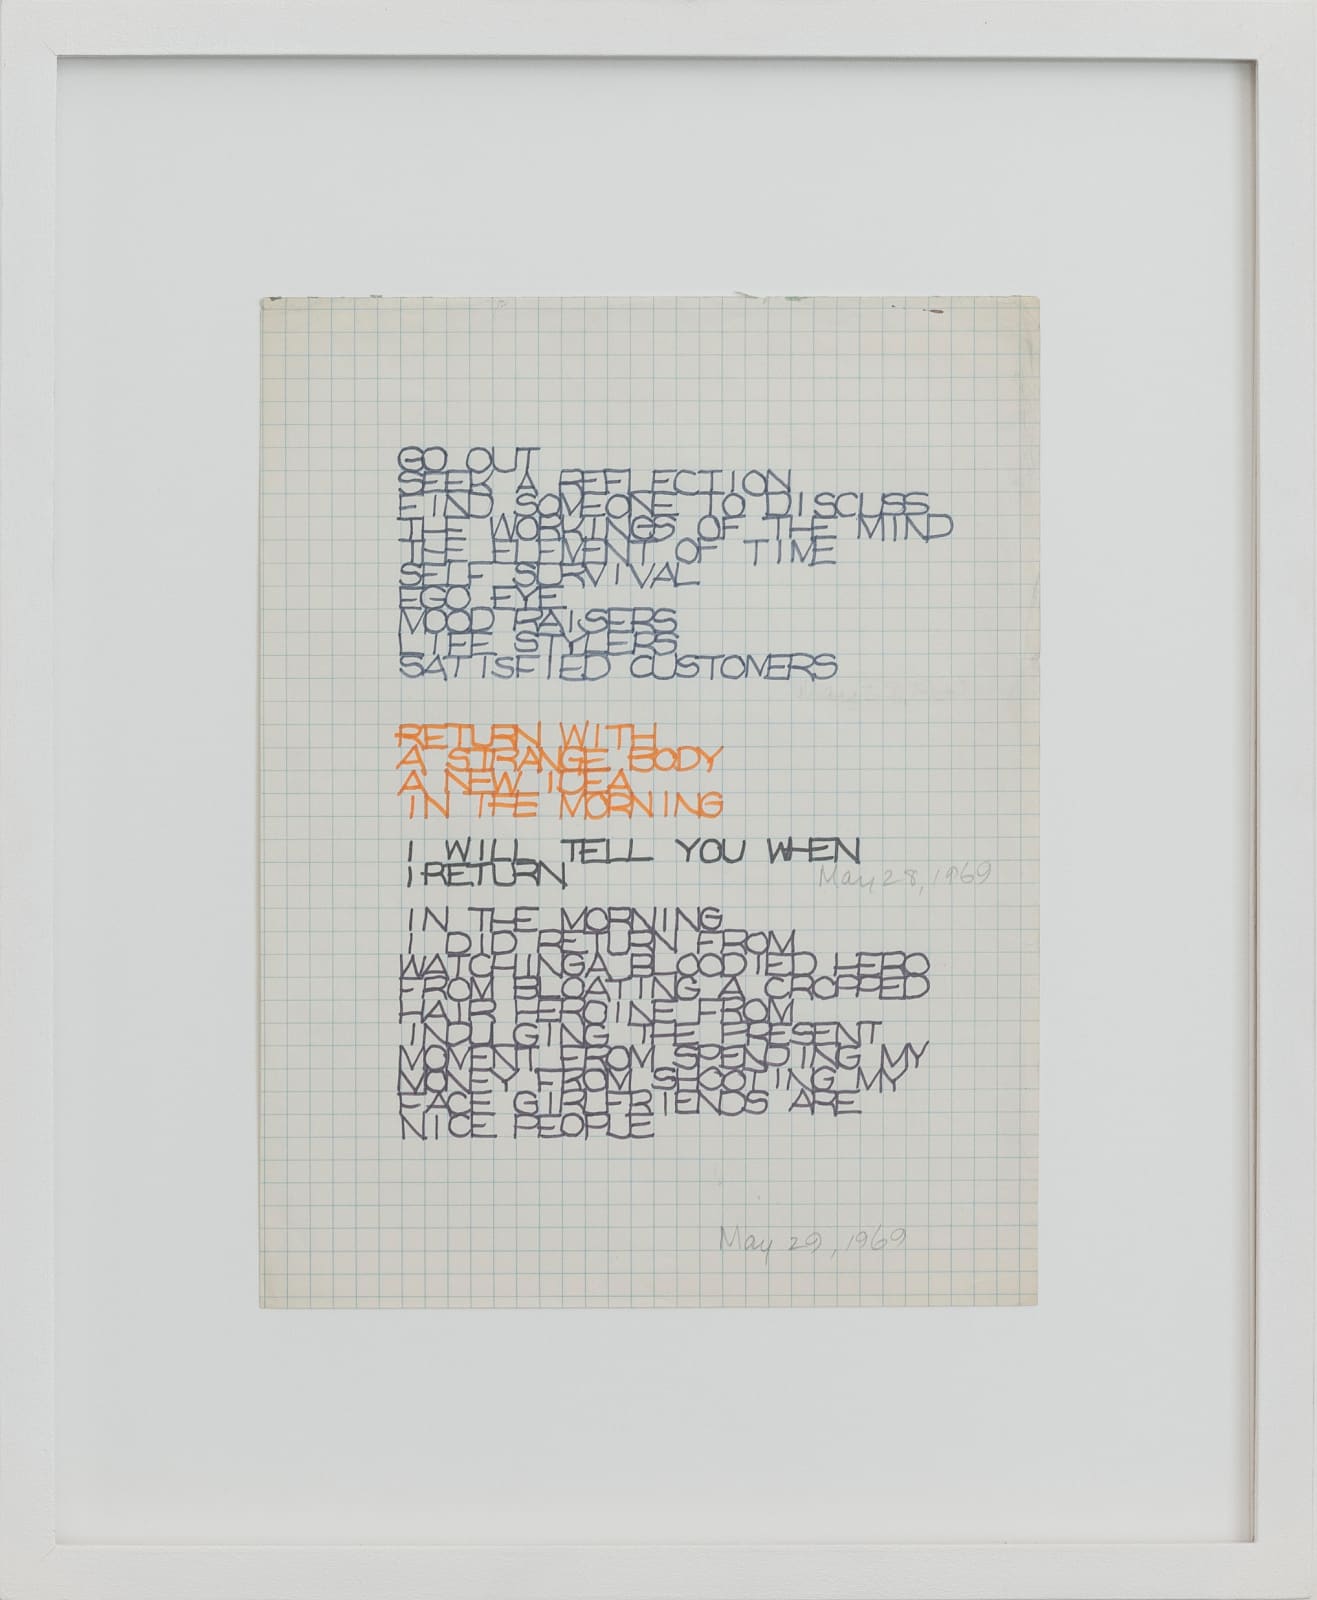 GO OUT
SEEK A REFLECTION
FIND SOMEONE TO DISCUSS
THE WORKINGS OF THE MIND
THE ELEMENT OF TIME
SELF SURVIVAL
EGO EYE
MOOD RAISERS
LIFE STYLERS
SATTISFIED CUSTOMERS
RETURN WITH
A STRANGE BODY
A NEW IDEA
IN THE MORNING
I WILL TELL YOU WHEN
I RETURN
May 28, 1969
IN THE MORNING
I DID RETURN FROM
WATCHING A BLOODIED HERO
FROM BLOATING A CROPPED
HAIR HEROINE FROM
INDULGING THE PRESENT
MOMENT FROM SPENDING MY
MONEY FROM SHOOTING MY
FACE GIRLFRIENDS ARE
NICE PEOPLE
May 29, 1969